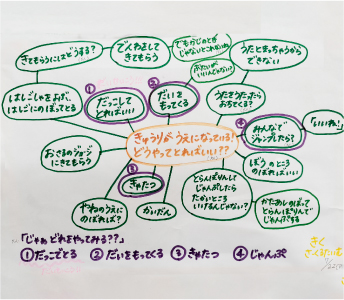 きてもらうにはどうする？
でんわをして
きてもらう
でもかじのとき
じゃないとこれないね
うたとまっちゃうから
できない
おだいが
いいんじゃない？
はしごしゃをよぶ、
はしごにのぼってとる
①
だっこして
とればいい
②
だいを
もってくる
うたをうたったら
おちてくる？
④
みんなで
ジャンプしたら？
「いいね！」
きゅうりがうえになっている！
どうやってとればいい？？
おさるのジョージ
にきてもらう
③
きゃたつ
ぼうのところ
のぼればいい
やねのうえに
のぼれば？
かいだん
とらんぽりんして
じゃんぷしたら
たかいところ
いけるんじゃない？
かたあしのぼって
とらんぽりんで
じゃんぷする
「じゃぁ どれをやってみる？？」
①だっこでとる ②だいをもってくる ③きゃたつ ④じゃんぷ
きく